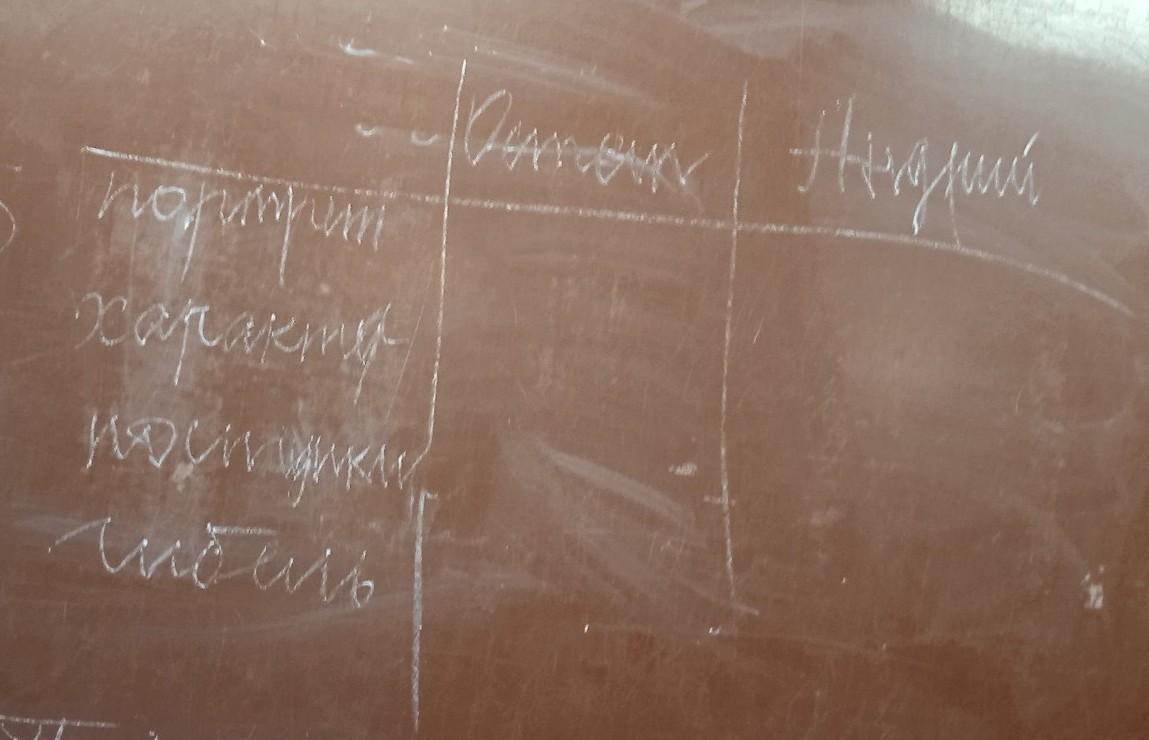 Остап Андрий
портрет
характер
поступки
гибель